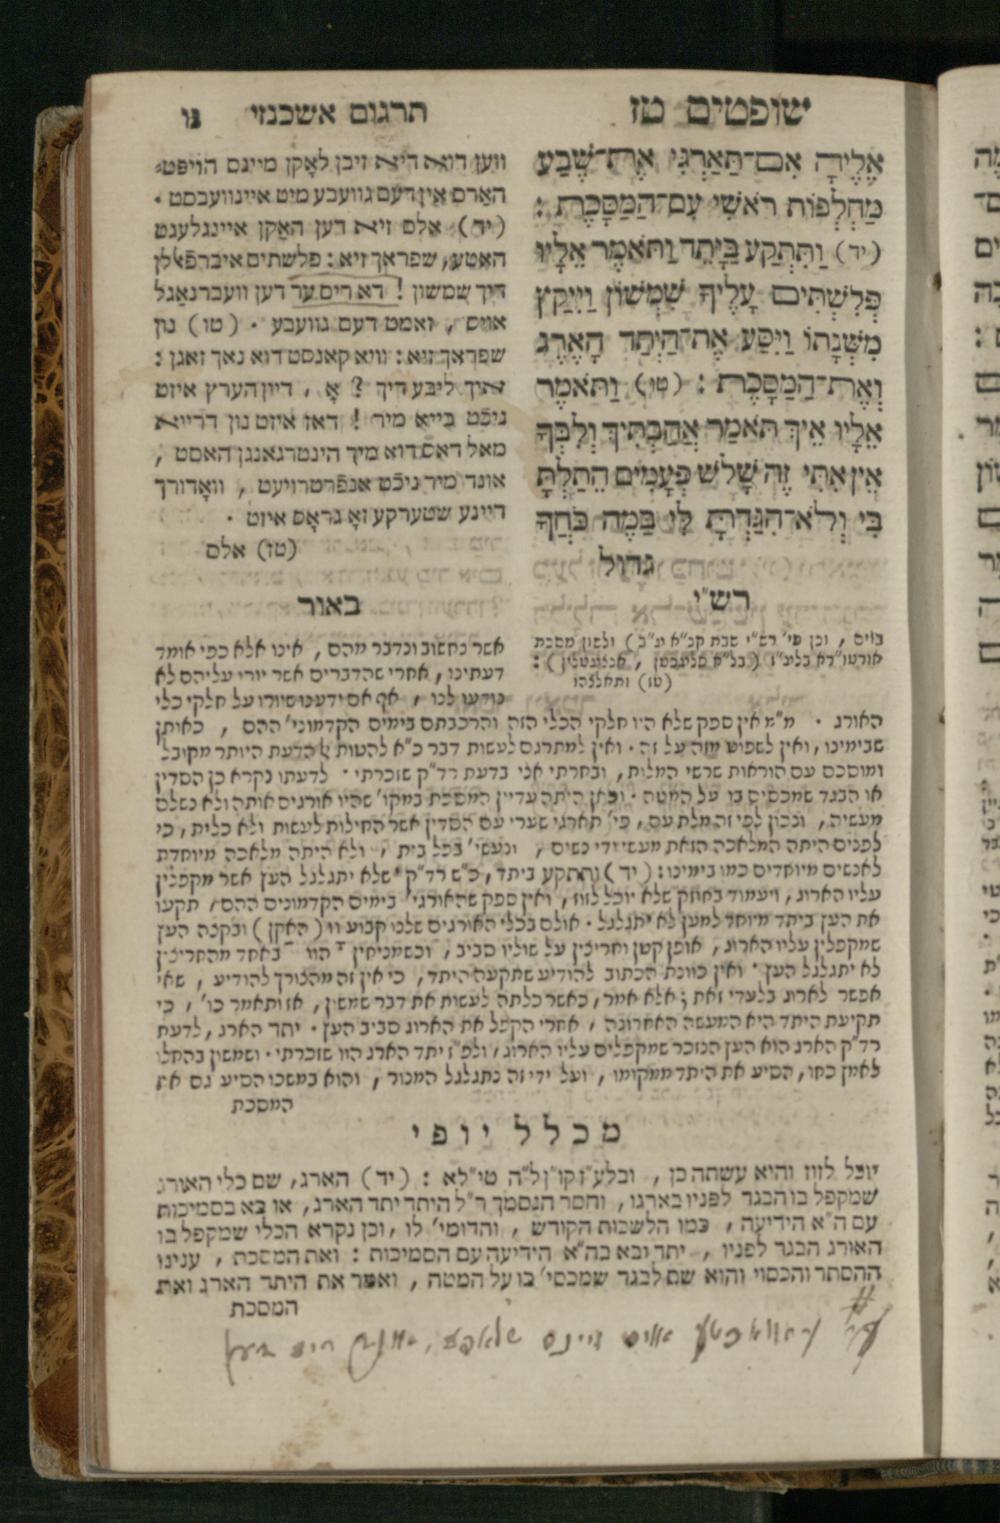 שופטים טז
תרגום אשכנזי
נו
אֵלֶיהָ אִם־תַּאַרְגִי אֶת־שֶׁבַע
מַחְלְפוֹת רֹאשִׁי עִם־הַמַּסָּכֶת :
(יד) וַתִּתְקַע בַּיָּתֵד וַתֹּאמֶר אֵלָיו
פְּלִשְׁתִּים עָלֶיךָ שִׁמְשׁוֹן וַיִּיקַץ
מִשְּׁנָתוֹ וַיִּסַּע אֶת־הַיְתַד הָאֶרֶג
וְאֶת־הַמַּסָּכֶת : (טו) וַתֹּאמֶר
אֵלָיו אֵיךְ תֹּאמַר אֲהַבְתִּיךְ וְלִבְּךָ
אֵין אִתִּי זֶה שָׁלֹשׁ פְּעָמִים הֵתַלְתָּ
בִּי וְלֹא־הִגַּדְתָּ לִּי בַּמֶּה כֹּחֲךָ
גדול
ווען דוא דיא זיבן לאָקן מיינס הויפט־
האַרס אין דעם גוועבע מיט איינוועבסט ·
(יד) אלס זיא דען האַקן איינגלעגט
האטטע, שפראך זיא : פלשתים איברפֿאלן
דיך שמשון ! דא ריס ער דען וועברנאגל
אויס , זאמט דעם גוועבע · (טו) נון
שפראך זיא : וויא קאנסט דוא נאך זאגן :
איך ליבע דיך ? אָ , דיין הערץ איזט
ניכֿט בייא מיר ! דאז איזט נון דרייא
מאל דאס דוא מיך הינטרגאנגן האסט ,
אונד מיר ניכֿט אנפֿרטרויעט , וואָדורך
דיינע שטערקע זאָ גראָס איזט ·
(טז) אלס
רש"י
בוים , וכן פי' רש"י שבת קנ"א ע"ב) ולשון מסכת
(טו) ותאלצהו
באור
אשר נחשוב ונדבר מהם , אינו אלא כפי אומד
דעתינו , אחרי שהדברים אשר יורי עליהם לא
נודעו לנו , אף אם ידענו שיורו על חלקי כלי
האורג · מ"מ אין ספק שלא היו חלקי הכלי הזה והרכבתם בימים הקדמוני' ההם , כאותן
שבימינו , ואין לשפוט מזה על זה · ואין למתרגם לעשות דבר כ"א להטות להדעת היותר מקובל
ומוסכם עם הוראות שרשי המלות , ובחרתי אני בדעת רד"ק שזכרתי · לדעתו נקרא כן הסדין
או הבגד שמכסים בו על המטה · וכאן היתה עדיין המסכת במקו' שהיו אורגים אותה ולא נשלם
מעשיה , ונכון לפי זה מלת עם , פי' תארגי שערי עם הסדין אשר החילות לעשות ולא כלית , כי
לפנים היתה המלאכה הזאת מעשי ידי נשים , ונעשי' בכל בית , ולא היתה מלאכה מיוחדת
לאנשים מיוחדים כמו בימינו : (יד) ותתקע ביתד , כ"ש רד"ק שלא יתגלגל העץ אשר מקפלין
עליו הארוג , ויעמוד בחוזק שלא יוכל לזוז , ואין ספק שהאורגי' בימים הקדמונים ההם , תקעו
את העץ ביתד מיוחד למען לא יתגלגל · אולם בכלי האורגים שלנו קבוע וו (האקן) ובקנה העץ
שמקפלין עליו הארוג , אופן קטן וחריצין על שוליו סביב , וכשמניחין הוו באחד מהחריצין
לא יתגלגל העץ · ואין כוונת הכתוב להודיע שתקעה היתד , כי אין זה מהצורך להודיע , שאי
אפשר לארוג בלעדי זאת ; אלא אמר , כאשר כלתה לעשות את דבר שמשון , אז ותאמר כו' , כי
תקיעת היתד היא המעשה האחרונה , אחרי הקפל את הארוג סביב העץ · יתד הארג , לדעת
רד"ק הארג הוא העץ הנזכר שמקפלים עליו הארוג , ולפ"ז יתד הארג הוו שזכרתי · ושמשון בהחלו
לאמץ כחו , הסיע את היתד ממקומו , ועל ידי זה נתגלגל המנור , והוא במשכו הסיע גם את
המסכת
מכלל יופי
יוכל לזוז והיא עשתה כן , ובלע"ז קו"ן ל"ה טי"לא : (יד) הארג, שם כלי האורג
שמקפל בו הבגד לפניו בארגו, וחסר הנסמך ר"ל היתד יתד הארג, או בא בסמיכות
עם ה"א הידיעה , כמו הלשכות הקודש , והדומי' לו , וכן נקרא הכלי שמקפל בו
האורג הבגד לפניו , יתד ובא בה"א הידיעה עם הסמיכות : ואת המסכת , ענינו
ההסתר והכסוי והוא שם לבגד שמכסי' בו על המטה , ואמר את היתד הארג ואת
המסכת
ער ערוואכטע אויס זיינם שלאפע, אונד ריס דען